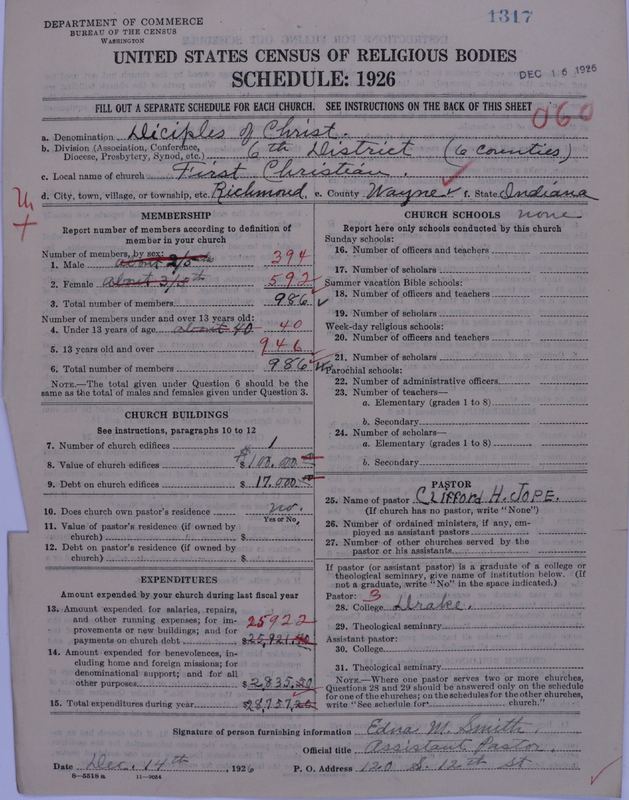 DEPARTMENT OF COMMERCE
BUREAU OF THE CENSUS
WASHINGTON
1317
UNITED STATES CENSUS OF RELIGIOUS BODIES
SCHEDULE: 1926
DEC 16 1926
FILL OUT A SEPARATE SCHEDULE FOR EACH CHURCH. SEE INSTRUCTIONS ON THE BACK OF THIS SHEET
060
a. Denomination Diciples of Christ.
b. Division (Association, Conference, Diocese, Presbytery, Synod, etc.) 6th District (6 Counties)
c. Local name of church First Christian.
d. City, town, village, or township, etc. Richmond, e. County Wayne f. State Indiana
MEMBERSHIP
Report number of members according to definition of
member in your church
Number of members, by sex:
1. Male about 2/5th 394
2. Female about 3/5th 592
3. Total number of members 986
Number of members under and over 13 years old:
4. Under 13 years of age about 40 40
5. 13 years old and over 946
6. Total number of members 986
NOTE.—The total given under Question 6 should be the
same as the total of males and females given under Question 3.
CHURCH BUILDINGS
See instructions, paragraphs 10 to 12
7. Number of church edifices 1
8. Value of church edifices $100.000
9. Debt on church edifices $ 17.000
10. Does church own pastor's residence no.
Yes or No
11. Value of pastor's residence (if owned by
church) $
12. Debt on pastor's residence (if owned by
church) $
EXPENDITURES
Amount expended by your church during last fiscal year
13. Amount expended for salaries, repairs,
and other running expenses; for im-
provements or new buildings; and for
payments on church debt 25922
$25,921.
14. Amount expended for benevolences, in-
cluding home and foreign missions; for
denominational support; and for all
other purposes $2,835.20
15. Total expenditures during year $28,757.
CHURCH SCHOOLS none
Report here only schools conducted by this church
Sunday schools:
16. Number of officers and teachers
17. Number of scholars
Summer vacation Bible schools:
18. Number of officers and teachers
19. Number of scholars
Week-day religious schools:
20. Number of officers and teachers
21. Number of scholars
Parochial schools:
22. Number of administrative officers
23. Number of teachers—
a. Elementary (grades 1 to 8)
b. Secondary
24. Number of scholars—
a. Elementary (grades 1 to 8)
b. Secondary
PASTOR
25. Name of pastor CLIFFORD H. JOPE.
(If church has no pastor, write "None")
26. Number of ordained ministers, if any, em-
ployed as assistant pastors
27. Number of other churches served by the
pastor or his assistants
If pastor (or assistant pastor) is a graduate of a college or
theological seminary, give name of institution below. (If
not a graduate, write "No" in the space indicated.)
Pastor: 3
28. College Drake.
29. Theological seminary
Assistant pastor:
30. College
31. Theological seminary
NOTE.—Where one pastor serves two or more churches,
Questions 28 and 29 should be answered only on the schedule
for one of the churches; on the schedules for the other churches,
write "See schedule for church."
Signature of person furnishing information Edna M. Smith.
Official title Assistant Pastor.
Date Dec. 14th, 1926 P. O. Address 120 S. 12th St.
8-5518 a 11-9024